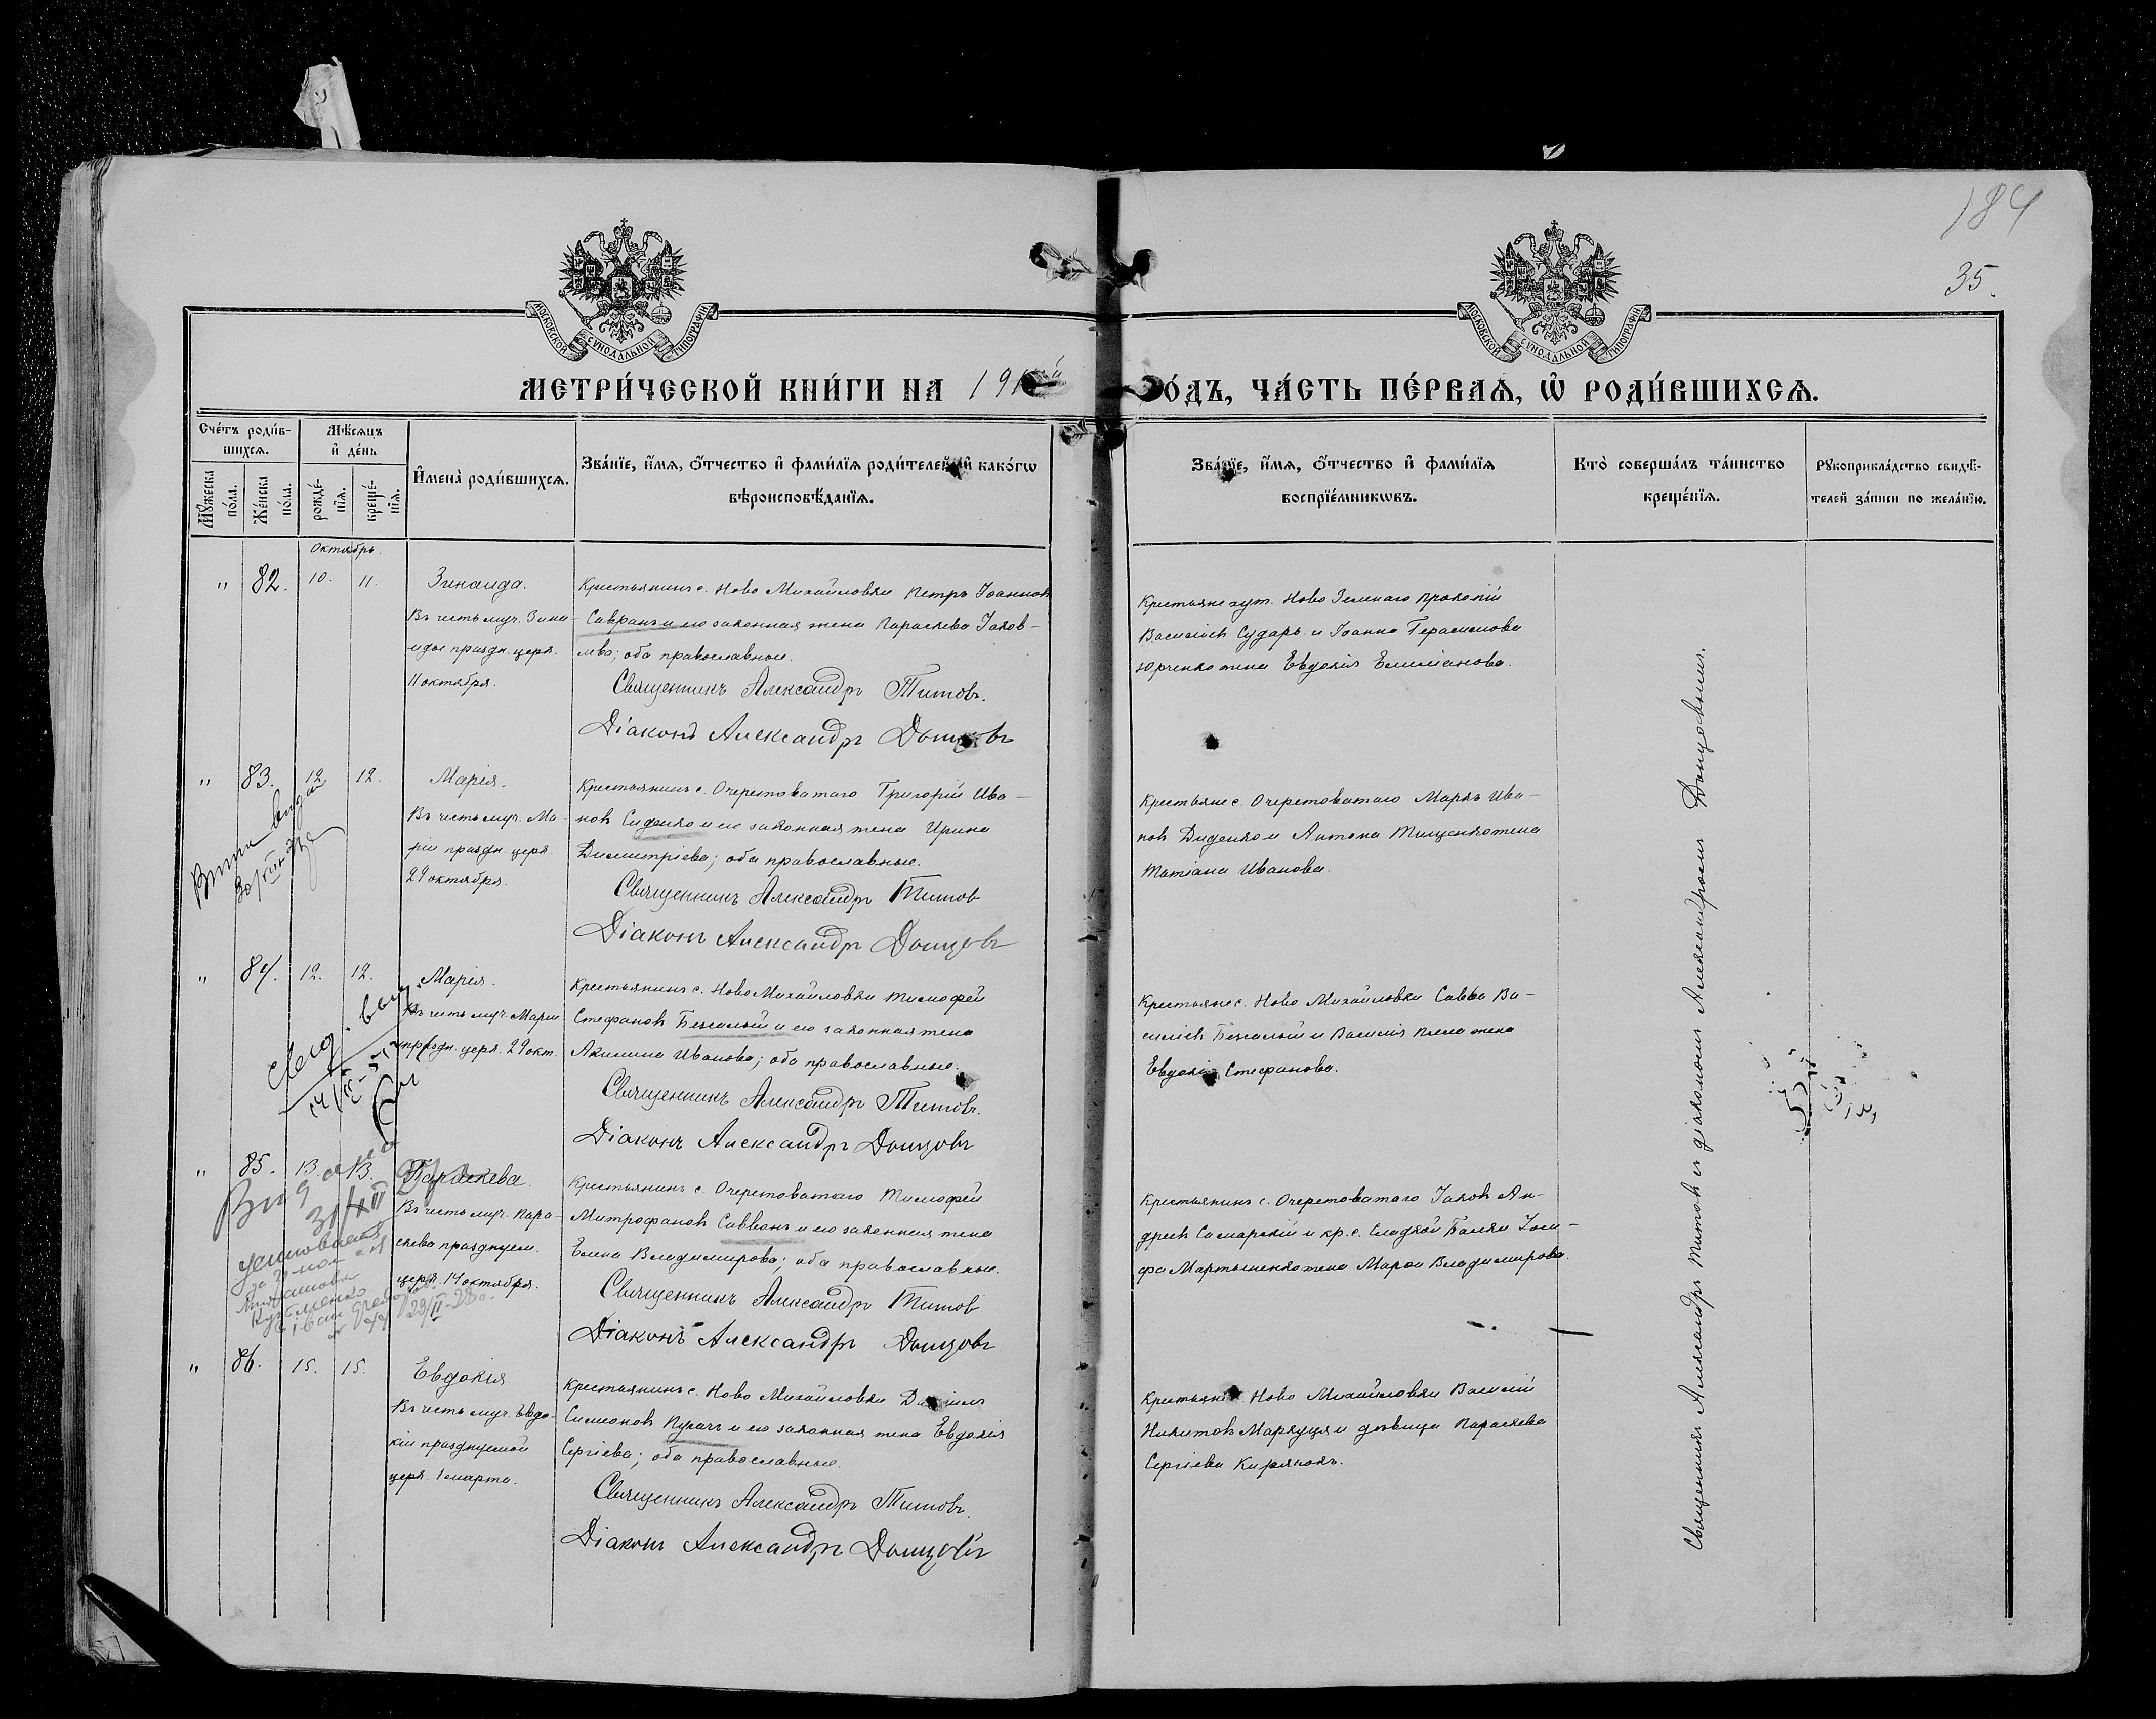 184
35.
МОСКОВСКОЙ СѴНОДАЛЬНОЙ ТИПОГРАФІИ
МОСКОВСКОЙ СѴНОДАЛЬНОЙ ТИПОГРАФІИ
МЕТРИ́ЧЕСКОЙ КНИ́ГИ НА 191
О́ДЪ, ЧА́СТЬ ПЕ́РВАѦ, Ѡ҆ РОДИ́ВШИХСѦ.
Сче́тъ роди́в-
шихсѧ.
Мꙋ́жеска по́ла.
Же́нска по́ла.
Мѣ́сѧцъ
и҆ де́нь
рожде́-
нїѧ.
креще́-
нїѧ.
И҆мена̀ роди́вшихсѧ.
Зва́нїе, и҆́мѧ, ѻ҆́тчество и҆ фами́лїѧ роди́телей, и҆ како́гѡ
вѣроисповѣ́данїѧ.
Зва́нїе, и҆́мѧ, ѻ҆́тчество и҆ фами́лїѧ
воспрїе́мникѡвъ.
Кто̀ соверша́лъ та́инство
креще́нїѧ.
Рꙋкоприкла́дство свидѣ́-
телей за́писи по жела́нїю.
Октябрь.
" 82. 10. 11. Зинаида.
Въ честь муч. Зина-
иды праздн. церк.
11 октября.
Крестьянинъ с. Ново Михайловки Петръ Іоанновъ
Савранъ и его законная жена Параскева Іаков-
лева; оба православные.
Священникъ Александръ Титовъ.
Діаконъ Александръ Донцовъ
Крестьяне хут. Ново Зеленаго Прокопій
Василіевъ Сударь и Іоанна Герасимова
Юрченко жена Евдокія Емиліанова.
" 83. 12. 12. Марія.
Въ честь муч. Ма-
ріи праздн. церк.
29 октября.
Крестьянинъ с. Очеретоватаго Григорій Ива-
новъ Сиденко и его законная жена Ирина
Димитріева; оба православные.
Священникъ Александръ Титов
Діаконъ Александръ Донцовъ
Крестьяне с. Очеретоватаго Маркъ Ива-
новъ Диденко и Антона Тищенко жена
Татіана Иванова.
" 84. 12. 12. Марія.
Въ честь муч. Маріи
праздн. церк. 29 окт.
Крестьянинъ с. Ново Михайловки Тимофей
Стефановъ Безкалый и его законная жена
Акилина Иванова; оба православные.
Священникъ Александръ Титовъ.
Діаконъ Александръ Донцовъ
Крестьяне с. Ново Михайловки Савва Ва-
силіевъ и Василія жена
Евдокія Стефанова.
" 85. 13. 13. Параскева.
Въ честь муч. Пара-
скева празднуем.
церк. 14 октября.
Крестьянинъ с. Очеретоватаго Тимофей
Митрофановъ Саввонъ и его законная жена
Елена Владимирова; оба православные.
Священникъ Александръ Титов
Діаконъ Александръ Донцовъ
Крестьянинъ с. Очеретоватаго Іаковъ Ан-
дреевъ Самарскій и кр. с. Сладкой Балки Іоси-
фа Мартыненко жена Марѳа Владимирова.
" 86. 15. 15. Евдокія
Въ честь муч. Евдо-
кіи празднуемой
церк. 1 марта.
Крестьянинъ с. Ново Михайловки Даніилъ
Симеоновъ Пугачъ и его законная жена Евдокія
Сергіева; оба православные.
Священникъ Александръ Титовъ.
Діаконъ Александръ Донцовъ
Ново Михайловки Василій
Никитовъ Маркуця и дѣвица Параскева
Сергіева Кирьяковъ.
Священникъ Александръ Титовъ съ діакономъ Александромъ Донцовымъ.